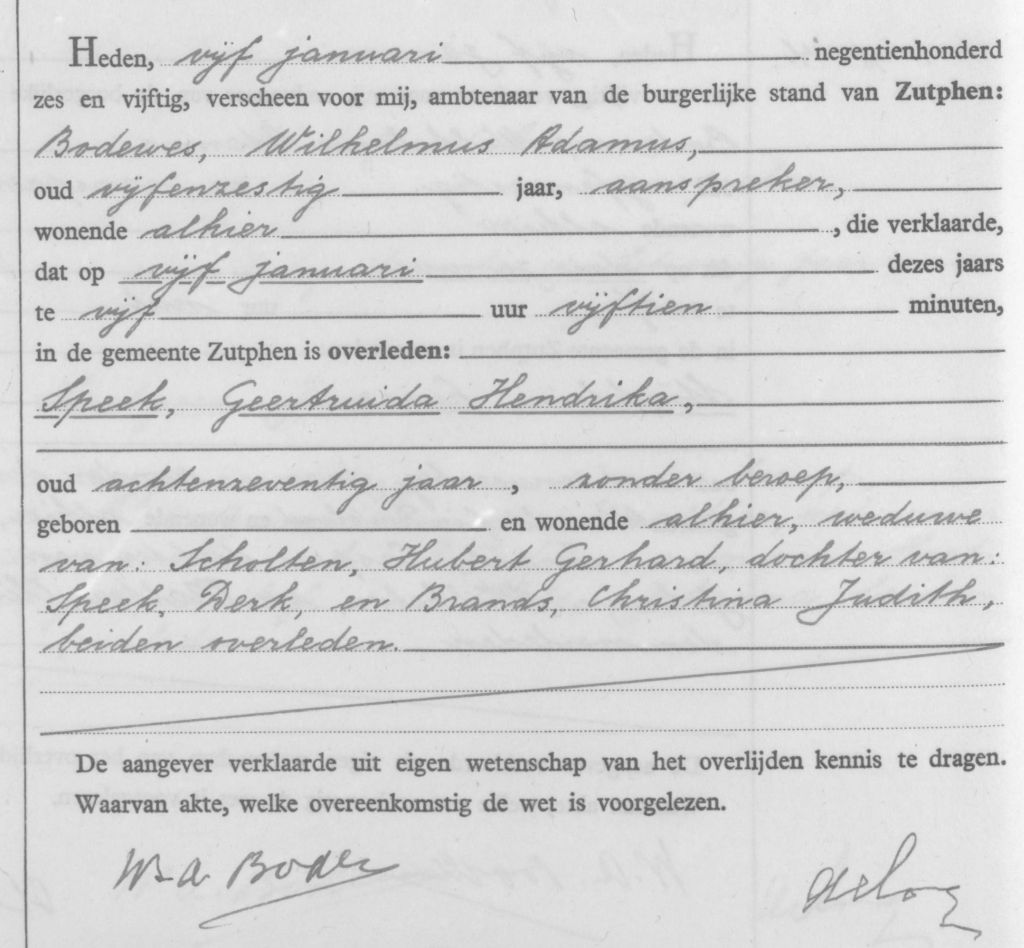 Heden, vijf januari negentienhonderd
zes en vijftig, verscheen voor mij, ambtenaar van de burgerlijke stand van Zutphen:
Bodewes, Wilhelmus Adamus,
oud vijfenzestig jaar, aanspreker,
wonende alhier, die verklaarde,
dat op vijf januari dezes jaars
te vijf uur vijftien minuten,
in de gemeente Zutphen is overleden:
Speek, Geertruida Hendrika,
oud achtenzeventig jaar, zonder beroep,
geboren en wonende alhier, weduwe
van: Scholten, Hubert Gerhard, dochter van:
Speek, Derk, en Brands, Christina Judith,
beiden overleden.
De aangever verklaarde uit eigen wetenschap van het overlijden kennis te dragen.
Waarvan akte, welke overeenkomstig de wet is voorgelezen.
W. A. Bode